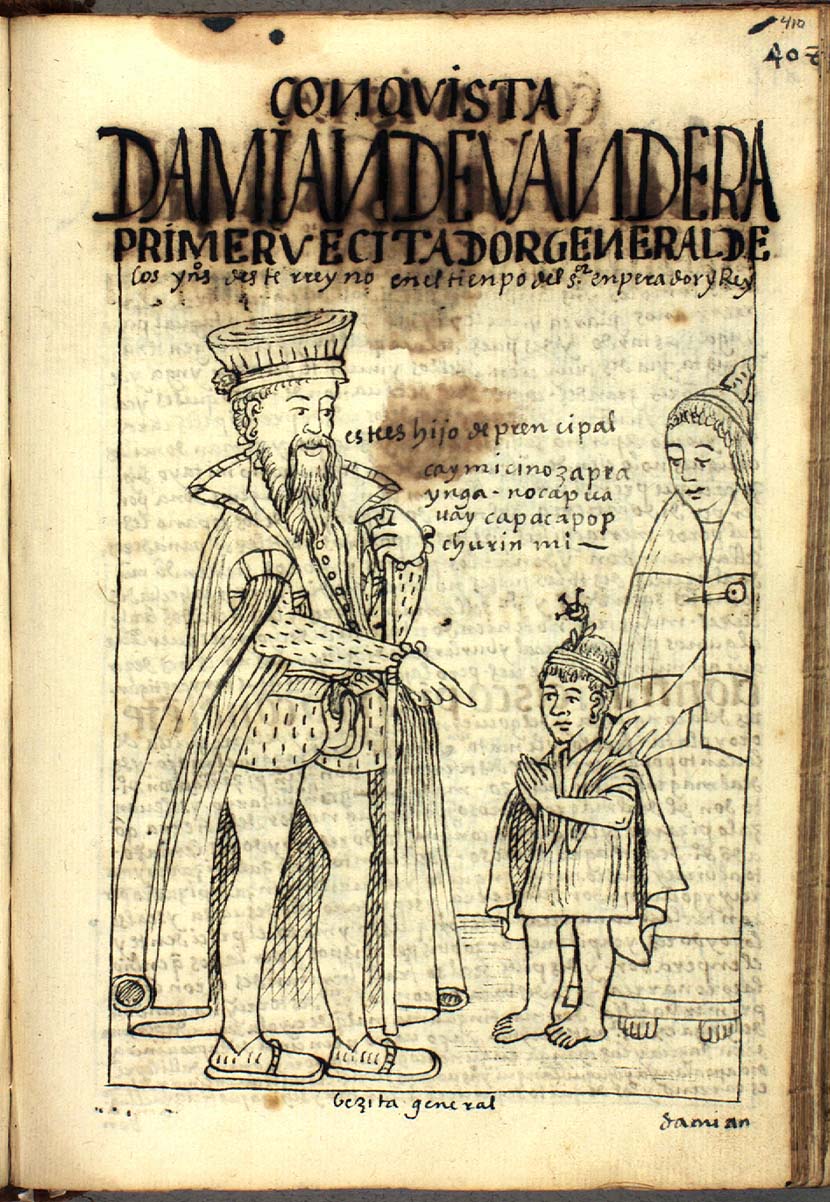 410
407
CONQVISTA
DAMIAN DE VANDERA
PRIMER VECITADOR GENERAL DE
los yn͠os deste rreyno en el tienpo del s.or enperador y Rey
estees hijo de prencipal
caymi cinozapra
ynga - nocap ua
uay capacapop
churin mi —
bezita general
damian